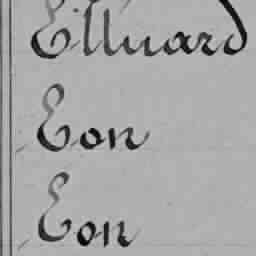 Elluard
Eon
Eon